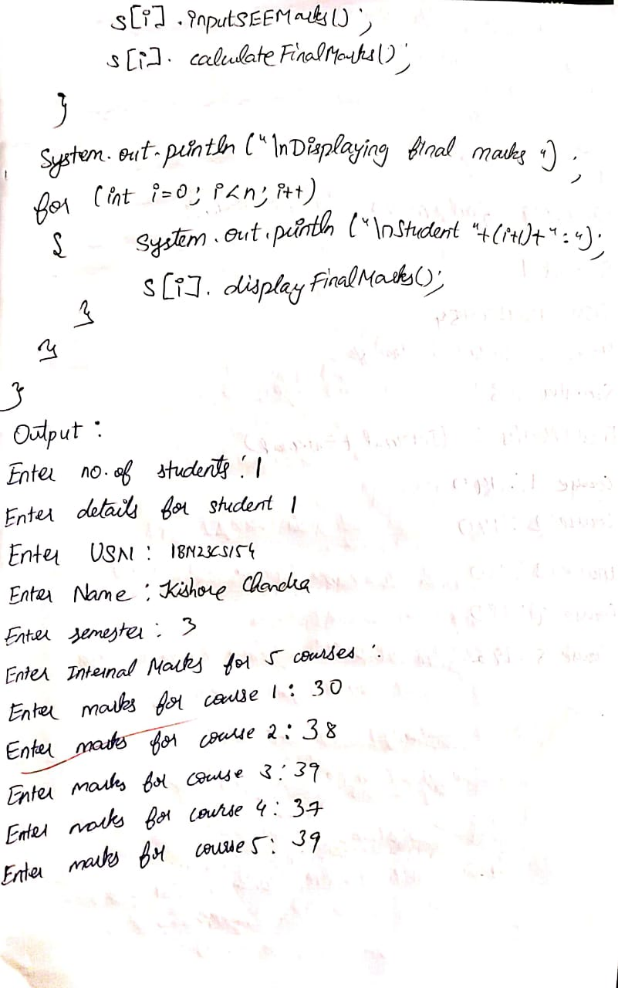 s[i].inputSEEMarks();
s[i]. calculateFinalMarks();
}
System.out.println ("\nDisplaying final marks ");
for (int i=0; i<n; i++)
{ System.out.println ("\nStudent "+(i+1)+" : ");
s[i]. displayFinalMarks();
}
}
}
Output :
Enter no. of students : 1
Enter details for student 1
Enter USN : 1BM23CS154
Enter Name : Kishore Chandra
Enter semester : 3
Enter Internal Marks for 5 courses :
Enter marks for course 1 : 30
Enter marks for course 2 : 38
Enter marks for course 3 : 39
Enter marks for course 4 : 37
Enter marks for course 5 : 39